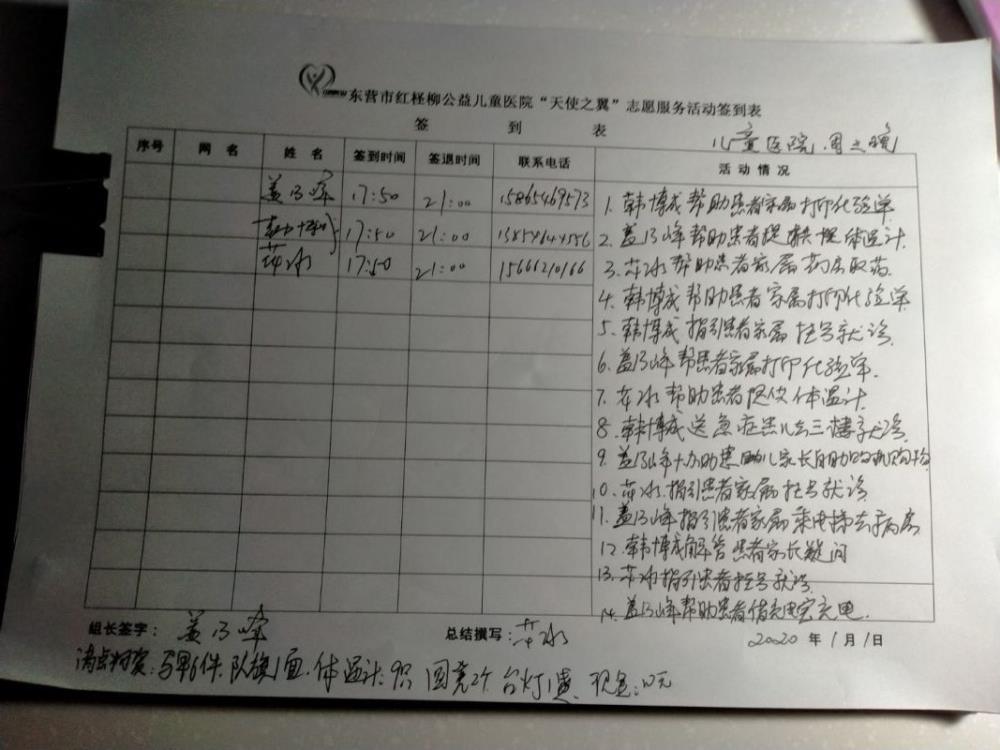 东营市红柽柳公益儿童医院“天使之翼”志愿服务活动签到表
签 到 表
儿童医院
序号 网名 姓名 签到时间 签退时间 联系电话 活动情况
盖乃峰 17:50 21:00 15865469573
17:50 21:00
17:50 21:00 15666210166
1. 韩博成帮助患者家属打印化验单
2. 盖乃峰帮助患者提供体温计
3. 帮助患者家属药房取药
4. 韩博成帮助患者家属打印化验单
5. 韩博成指引患者家属挂号就诊
6. 盖乃峰帮患者家属打印化验单
7. 帮助患者提供体温计
8. 韩博成送急症患儿去三楼就诊
9. 盖乃峰协助患儿家长自助购机购物
10. 指引患者家属挂号就诊
11. 盖乃峰指引患者家属乘电梯去病房
12. 韩博成解答患者家长疑问
13. 指引患者挂号就诊
14. 盖乃峰帮助患者借充电宝充电
组长签字：盖乃峰 总结撰写： 2020 年 1 月 1 日
清点物资：马甲6件 队旗1面 体温计：9只 台灯1 现金：